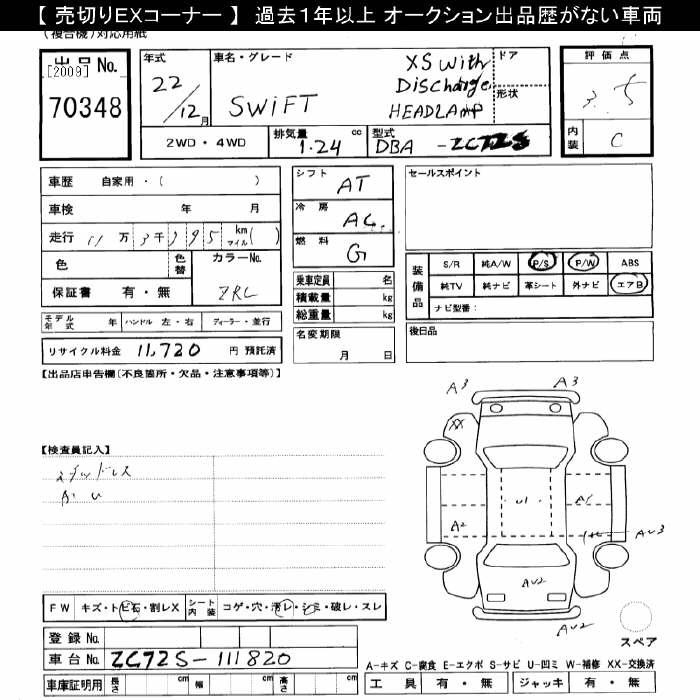 【 売切りEXコーナー 】 過去1年以上 オークション出品歴がない車両
(複合機)対応用紙
出品 No.
[2009]
70348
年式
22/12月
車名・グレード
SWIFT
XS with
Discharge
HEADLAMP
ドア
形状
評価点
3.5
内装
C
2WD ・ 4WD
排気量
1.24 cc
型式
DBA -ZC72S
車歴 自家用・( )
車検 年 月
走行 11 万 3 千 395 km マイル ( )
色
色替
カラーNo.
ZRL
保証書 有・無
モデル年式 年 ハンドル 左・右 ディーラー・並行
リサイクル料金 11,720 円 預託済
シフト
AT
冷房
AC
燃料
G
乗車定員 名
積載量 kg
総重量 kg
名変期限
月 日
セールスポイント
装備品
S/R 純A/W P/S P/W ABS
純TV 純ナビ 革シート 外ナビ エアB
ナビ型番:
後日品
【出品店申告欄(不良箇所・欠品・注意事項等)】
【検査員記入】
スタッドレス
A3 A3
XX
U1
A1
A2
AU3
AU2
AU2
スペア
FW キズ・トビ石・割レX シート内装 コゲ・穴・汚レ・シミ・破レ・スレ
登録 No.
車台 No. ZC72S-111820
車庫証明用 長さ cm 幅 cm 高さ cm
A-キズ C-腐食 E-エクボ S-サビ U-凹ミ W-補修 XX-交換済
工具 有・無 ジャッキ 有・無